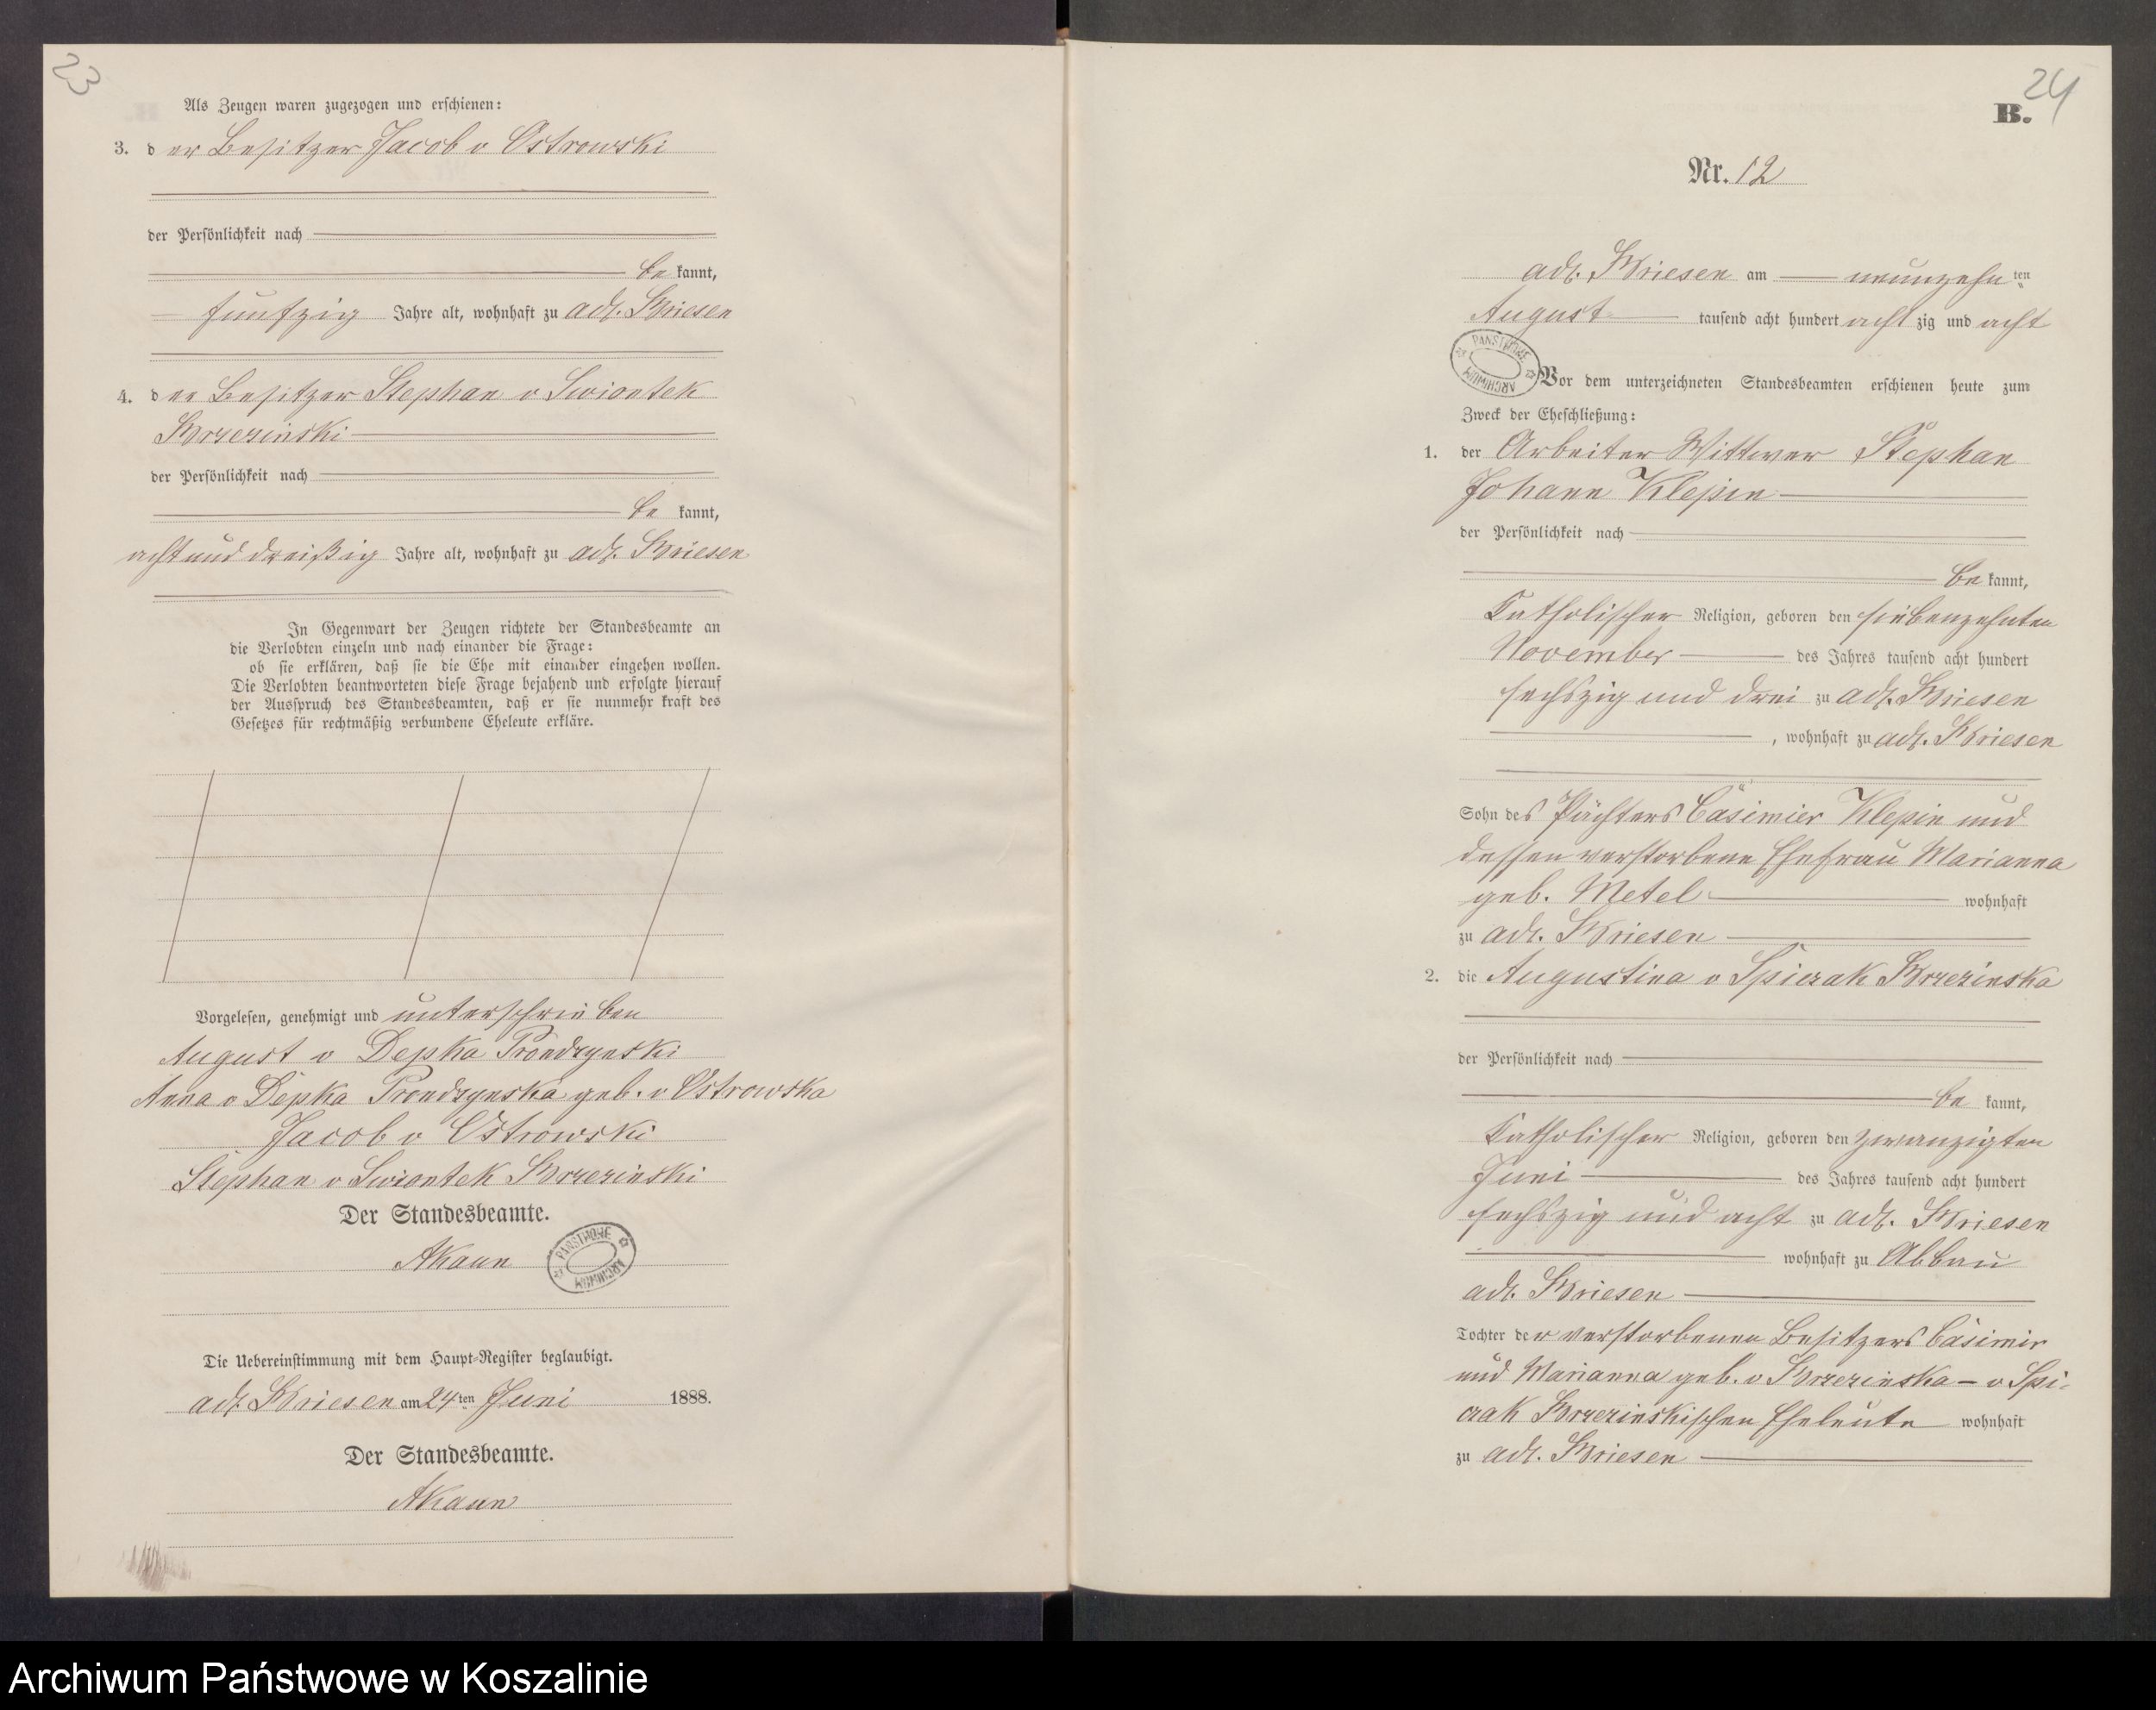 23
Als Zeugen waren zugezogen und erschienen:
3. der Besitzer Jacob v Ostrowski
der Persönlichkeit nach
be kannt,
funfzig Jahre alt, wohnhaft zu adl. Briesen
4. der Besitzer Stephan v Swiontek
Brzezinski
der Persönlichkeit nach
be kannt,
acht und dreißig Jahre alt, wohnhaft zu adl. Briesen
In Gegenwart der Zeugen richtete der Standesbeamte an
die Verlobten einzeln und nach einander die Frage:
ob sie erklären, daß sie die Ehe mit einander eingehen wollen.
Die Verlobten beantworteten diese Frage bejahend und erfolgte hierauf
der Ausspruch des Standesbeamten, daß er sie nunmehr kraft des
Gesetzes für rechtmäßig verbundene Eheleute erkläre.
Vorgelesen, genehmigt und unterschrieben
August v Depka Prondzynski
Anna v Depka Prondzynska geb. v Ostrowska
Jacob v Ostrowski
Stephan v Swiontek Brzezinski
Der Standesbeamte.
PAŃSTWOWE ARCHIWUM
Die Uebereinstimmung mit dem Haupt-Register beglaubigt.
adl. Briesen am 24ten Juni 1888.
Der Standesbeamte.
24
B.
Nr. 12
adl. Briesen am neunzehnten
August tausend acht hundert acht zig und acht
PAŃSTWOWE ARCHIWUM
Vor dem unterzeichneten Standesbeamten erschienen heute zum
Zweck der Eheschließung:
1. der Arbeiter Wittwer Stephan
Johann Klepin
der Persönlichkeit nach
be kannt,
Katholischer Religion, geboren den siebenzehnten
November des Jahres tausend acht hundert
sechszig und drei zu adl. Briesen
, wohnhaft zu adl. Briesen
Sohn des Pächters Casimier Klepin und
dessen verstorbene Ehefrau Marianna
geb. Metel wohnhaft
zu adl. Briesen
2. die Augustina v Spiczak Brzezinska
der Persönlichkeit nach
be kannt,
Katholischer Religion, geboren den zwanzigten
Juni des Jahres tausend acht hundert
sechszig und acht zu adl. Briesen
wohnhaft zu Abbau
adl. Briesen
Tochter der verstorbenen Besitzers Casimir
und Marianna geb. v Brzezinska - v Spi-
czak Brzezinskischen Eheleute wohnhaft
zu adl. Briesen
Archiwum Państwowe w Koszalinie